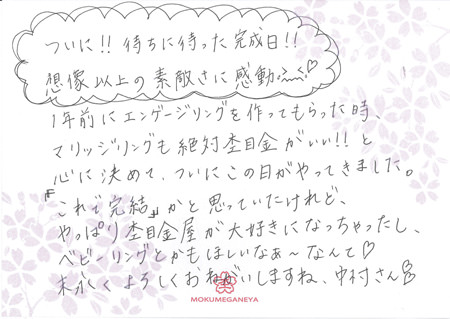 ついに!! 待ちに待った完成日!!
想像以上の素敵さに感動
1年前にエンゲージリングを作ってもらった時、
マリッジリングも絶対杢目金がいい!! と
心に決めて、ついにこの日がやってきました。
『これで完結』かと思っていたけれど、
やっぱり杢目金屋が大好きになっちゃったし、
ベビーリングとかもほしいなぁ〜なんて♡
末永くよろしくおねがいしますね、中村さん
MOKUMEGANEYA